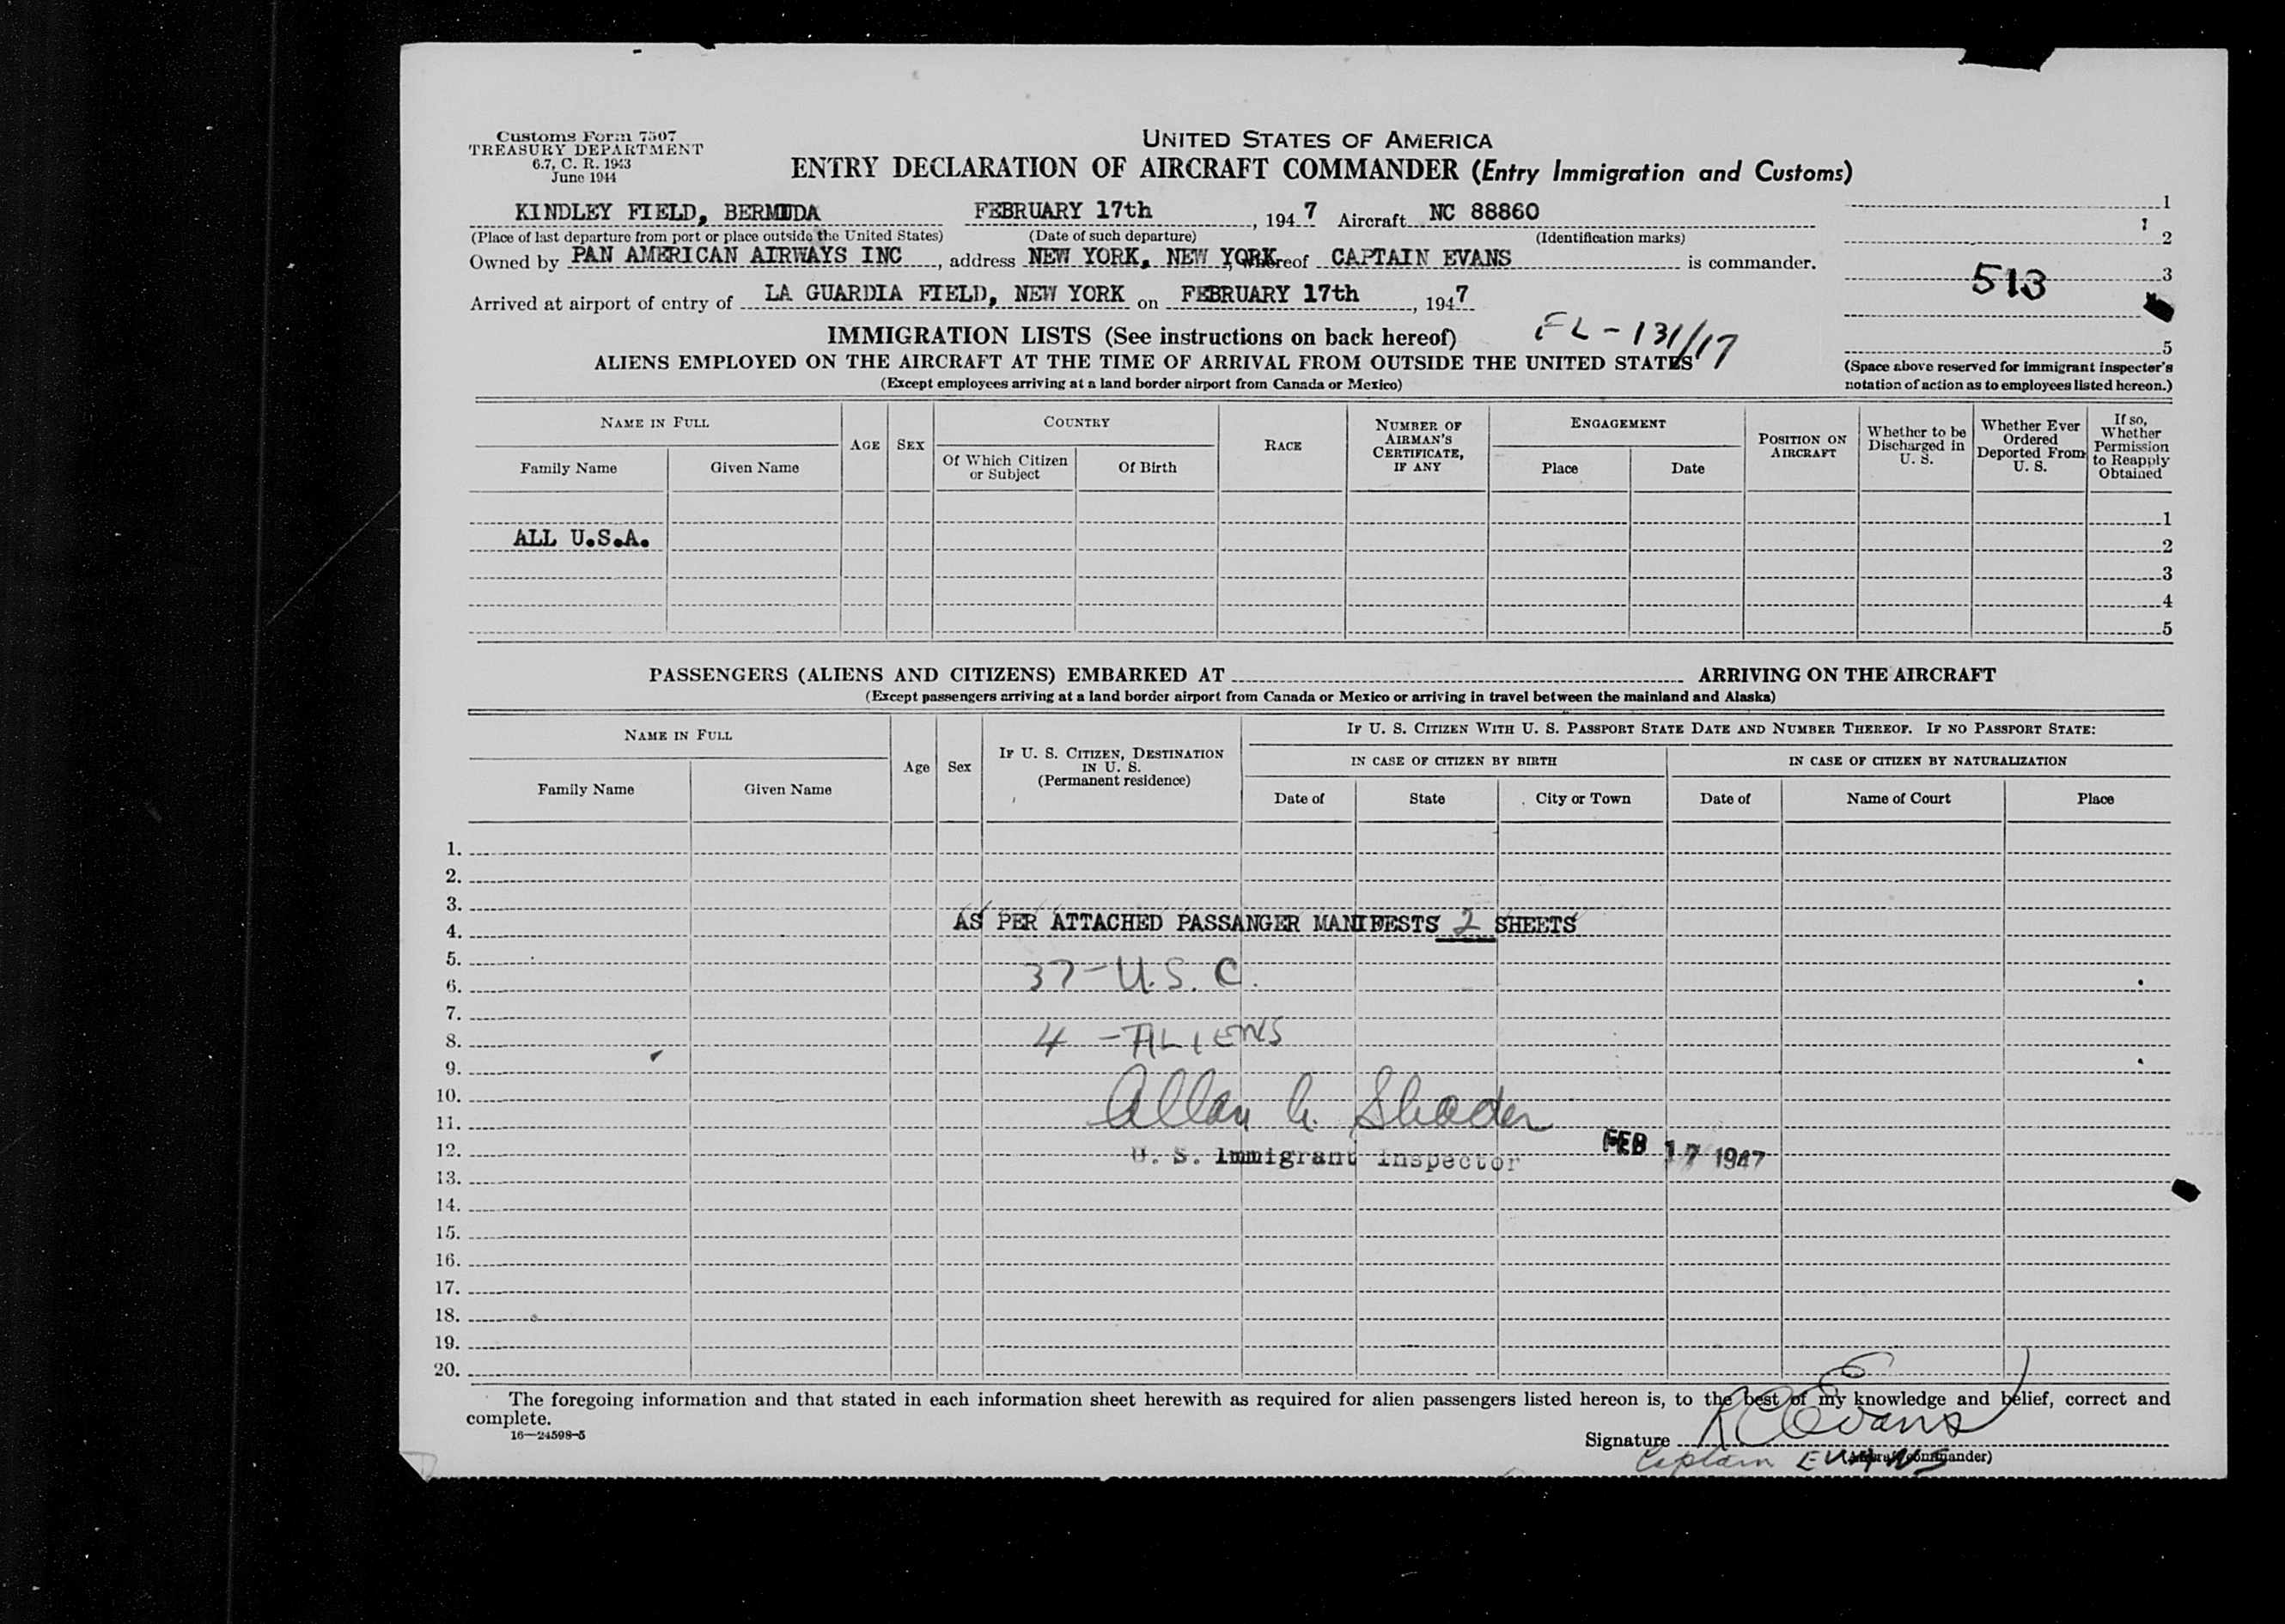 Customs Form 7507
TREASURY DEPARTMENT
6.7, C. R. 1943
June 1944
UNITED STATES OF AMERICA
ENTRY DECLARATION OF AIRCRAFT COMMANDER (Entry Immigration and Customs)
KINDLEY FIELD, BERMUDA FEBRUARY 17th, 1947 Aircraft NC 88860
(Place of last departure from port or place outside the United States) (Date of such departure) (Identification marks)
Owned by PAN AMERICAN AIRWAYS INC, address NEW YORK, NEW YORK, whereof CAPTAIN EVANS is commander.
Arrived at airport of entry of LA GUARDIA FIELD, NEW YORK on FEBRUARY 17th, 1947
1
2
513 3
5
(Space above reserved for immigrant inspector's notation of action as to employees listed hereon.)
IMMIGRATION LISTS (See instructions on back hereof) FL-131/17
ALIENS EMPLOYED ON THE AIRCRAFT AT THE TIME OF ARRIVAL FROM OUTSIDE THE UNITED STATES
(Except employees arriving at a land border airport from Canada or Mexico)
NAME IN FULL
Family Name Given Name
AGE SEX
COUNTRY
Of Which Citizen or Subject Of Birth
RACE
NUMBER OF AIRMAN'S CERTIFICATE, IF ANY
ENGAGEMENT
Place Date
POSITION ON AIRCRAFT
Whether to be Discharged in U. S.
Whether Ever Ordered Deported From U. S.
If so, Whether Permission to Reapply Obtained
1
ALL U.S.A. 2
3
4
5
PASSENGERS (ALIENS AND CITIZENS) EMBARKED AT ARRIVING ON THE AIRCRAFT
(Except passengers arriving at a land border airport from Canada or Mexico or arriving in travel between the mainland and Alaska)
NAME IN FULL
Family Name Given Name
Age Sex
IF U. S. CITIZEN, DESTINATION IN U. S. (Permanent residence)
IF U. S. CITIZEN WITH U. S. PASSPORT STATE DATE AND NUMBER THEREOF. IF NO PASSPORT STATE:
IN CASE OF CITIZEN BY BIRTH IN CASE OF CITIZEN BY NATURALIZATION
Date of State City or Town Date of Name of Court Place
1.
2.
3.
4. AS PER ATTACHED PASSANGER MANIFESTS 2 SHEETS
5.
6. 37-U.S.C.
7.
8. 4 - ALIENS
9.
10.
11. Allan G. Shader
12. U. S. Immigrant Inspector FEB 17 1947
13.
14.
15.
16.
17.
18.
19.
20.
The foregoing information and that stated in each information sheet herewith as required for alien passengers listed hereon is, to the best of my knowledge and belief, correct and
complete.
16—24598-5
Signature R C Evans
Captain EVANS (Aircraft commander)